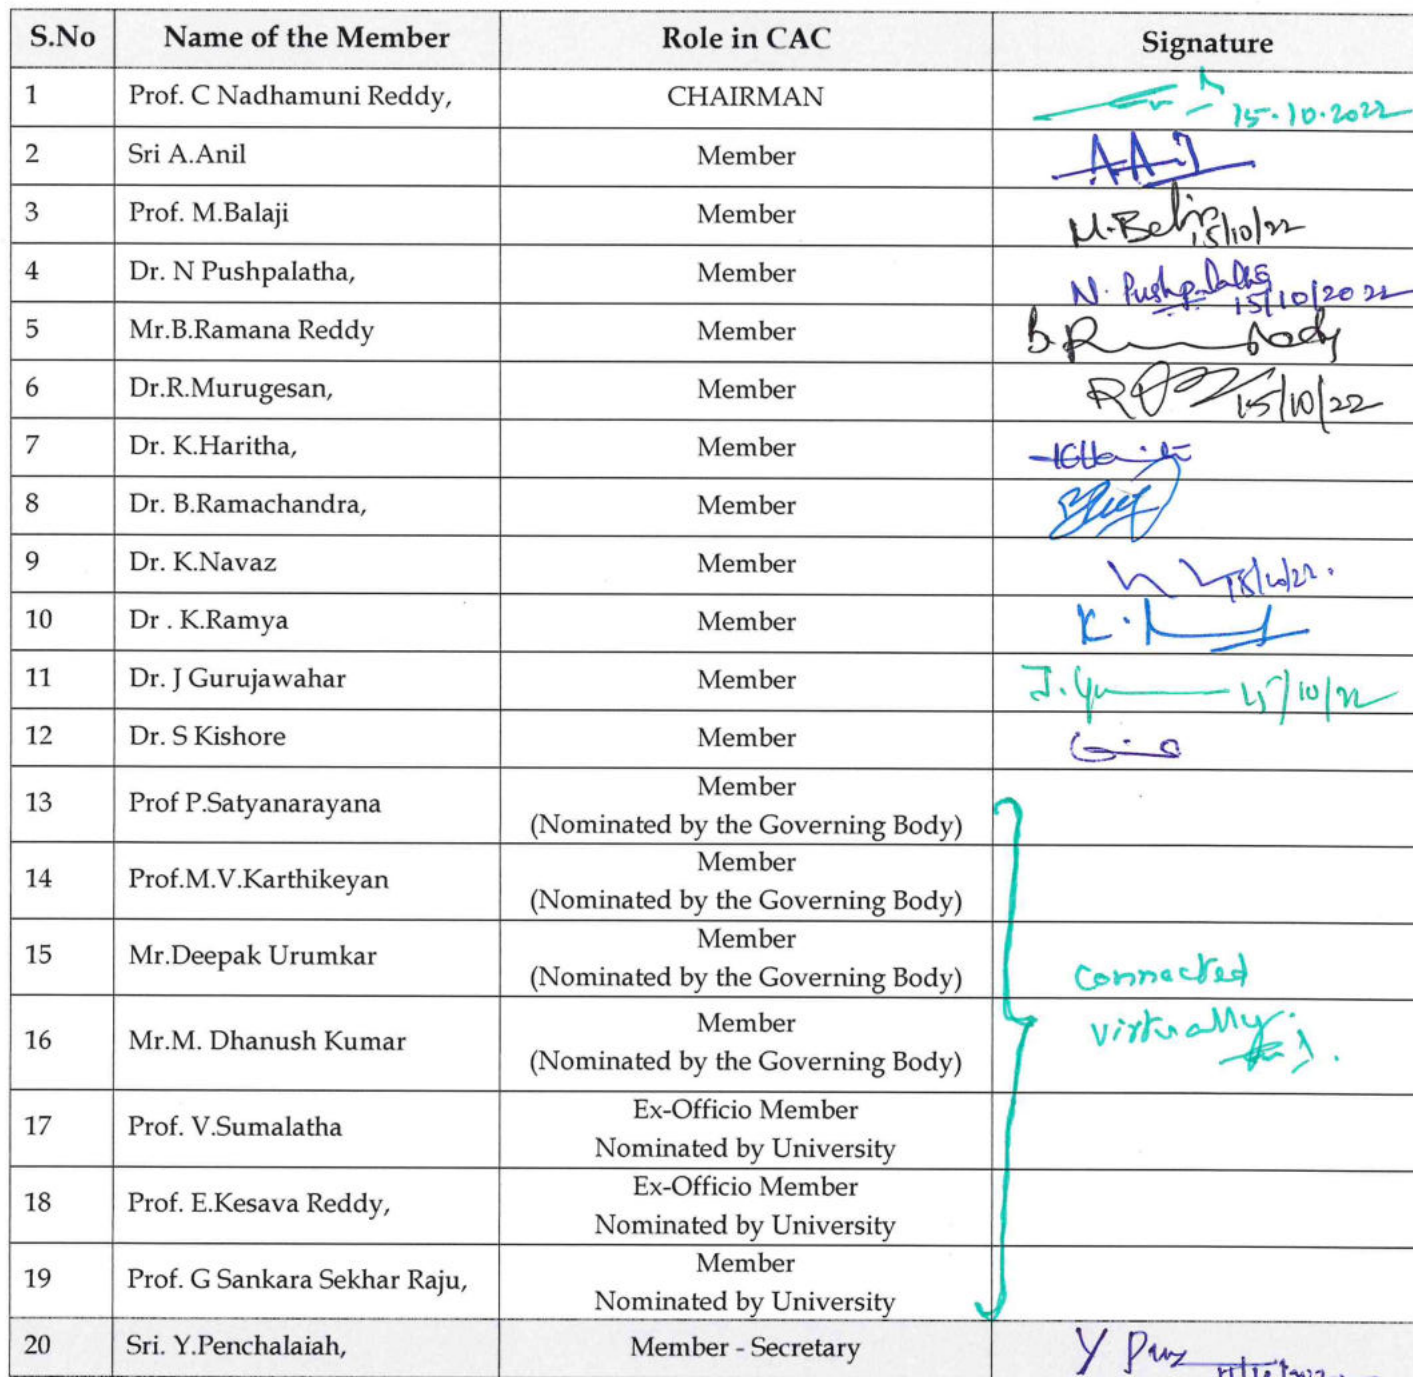 S.No Name of the Member Role in CAC Signature
1 Prof. C Nadhamuni Reddy, CHAIRMAN 15-10-2022
2 Sri A.Anil Member
3 Prof. M.Balaji Member 15/10/22
4 Dr. N Pushpalatha, Member N. Pushpalatha 15/10/2022
5 Mr.B.Ramana Reddy Member
6 Dr.R.Murugesan, Member 15/10/22
7 Dr. K.Haritha, Member
8 Dr. B.Ramachandra, Member
9 Dr. K.Navaz Member
10 Dr . K.Ramya Member
11 Dr. J Gurujawahar Member 15/10/22
12 Dr. S Kishore Member
13 Prof P.Satyanarayana Member
(Nominated by the Governing Body)
14 Prof.M.V.Karthikeyan Member
(Nominated by the Governing Body)
15 Mr.Deepak Urumkar Member
(Nominated by the Governing Body) Connected
16 Mr.M. Dhanush Kumar Member virtually
(Nominated by the Governing Body)
17 Prof. V.Sumalatha Ex-Officio Member
Nominated by University
18 Prof. E.Kesava Reddy, Ex-Officio Member
Nominated by University
19 Prof. G Sankara Sekhar Raju, Member
Nominated by University
20 Sri. Y.Penchalaiah, Member - Secretary